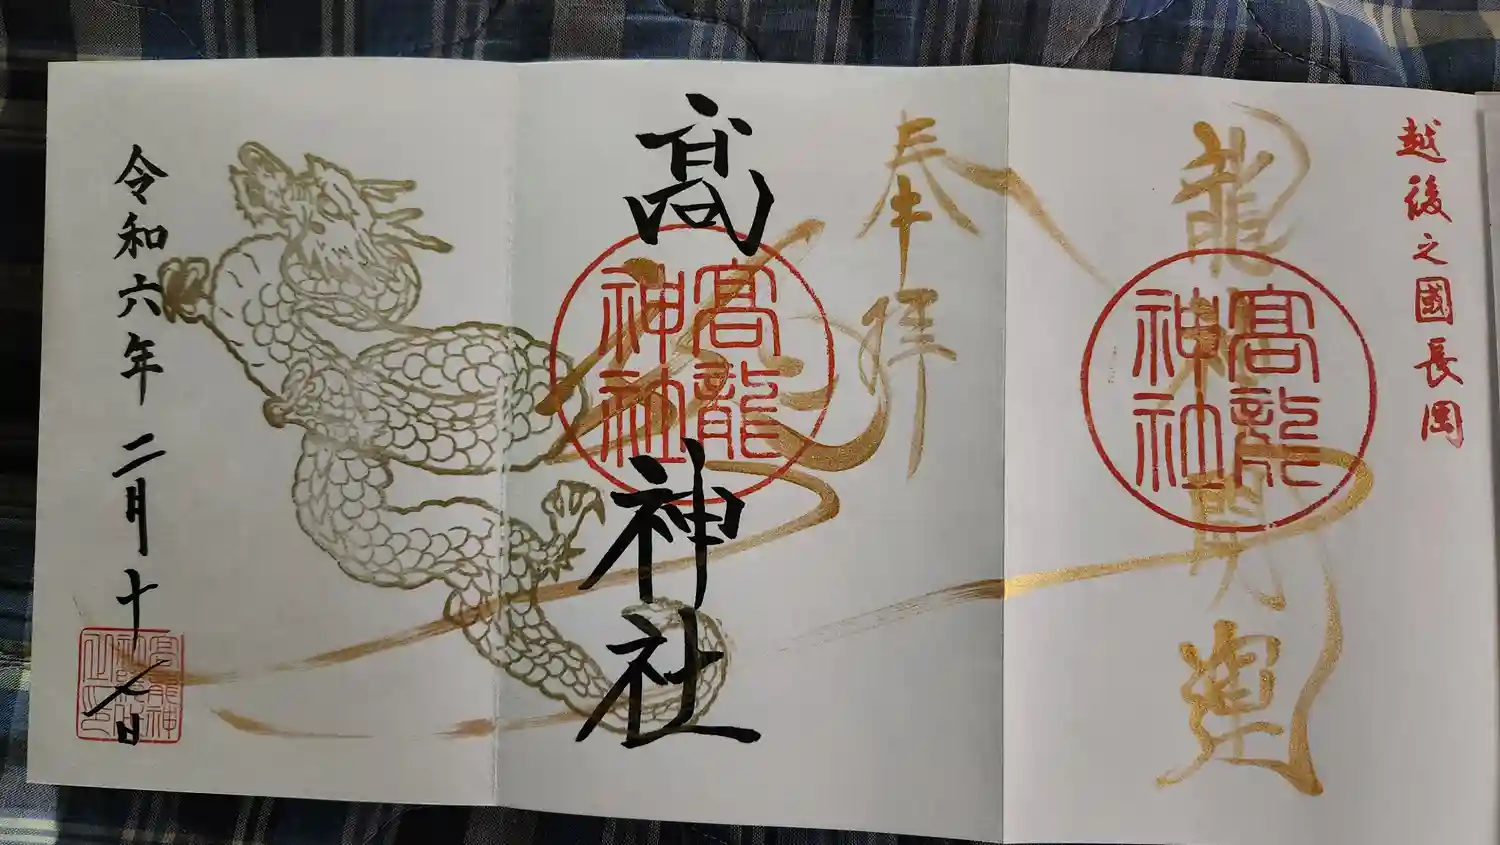 越後之國長岡
龍神開運
髙龍
神社
奉拝
髙龍神社
髙龍
神社
令和六年二月十七日